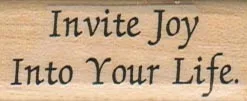 Invite Joy
Into Your Life.